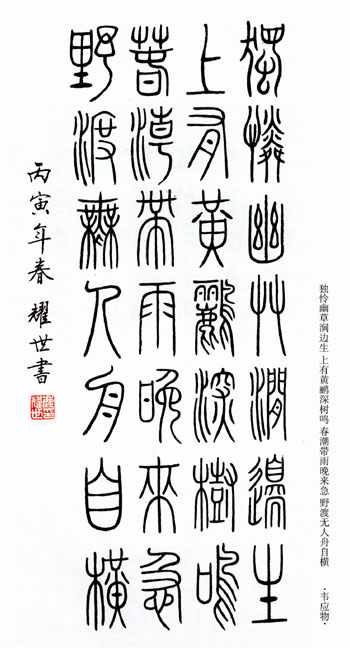 獨憐幽艸澗邊生
上有黃鸝深樹鳴
春潮帶雨晚來急
野渡無人舟自橫
丙寅年春 耀世書
独怜幽草涧边生 上有黄鹂深树鸣 春潮带雨晚来急 野渡无人舟自横 ·韦应物·